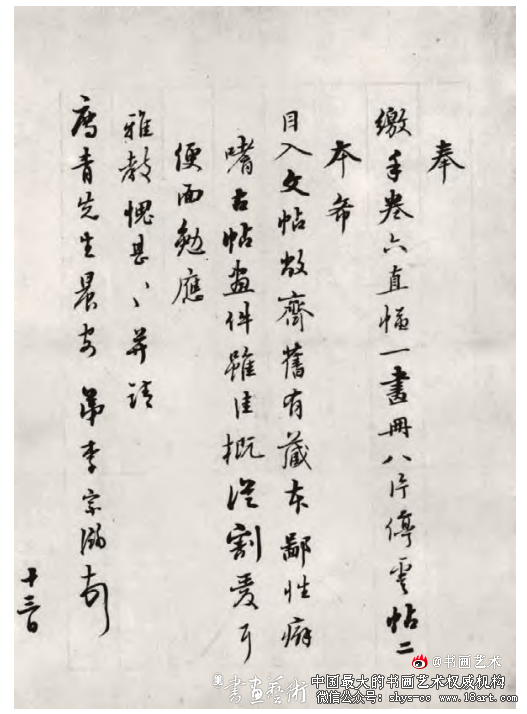 奉
缴手卷六直幅一画册八片停云帖二
本希
目入文帖敝齋舊有藏本鄙性癖
嗜古帖畫件雖佳概從割愛耳
便面勉應
雅教愧甚々并請
先生晨安 弟李宗瀚頓
十三日
@书画艺术
書畫藝術
中国最大的书画艺术权威机构
微信公众号：shys-cc www.18art.com